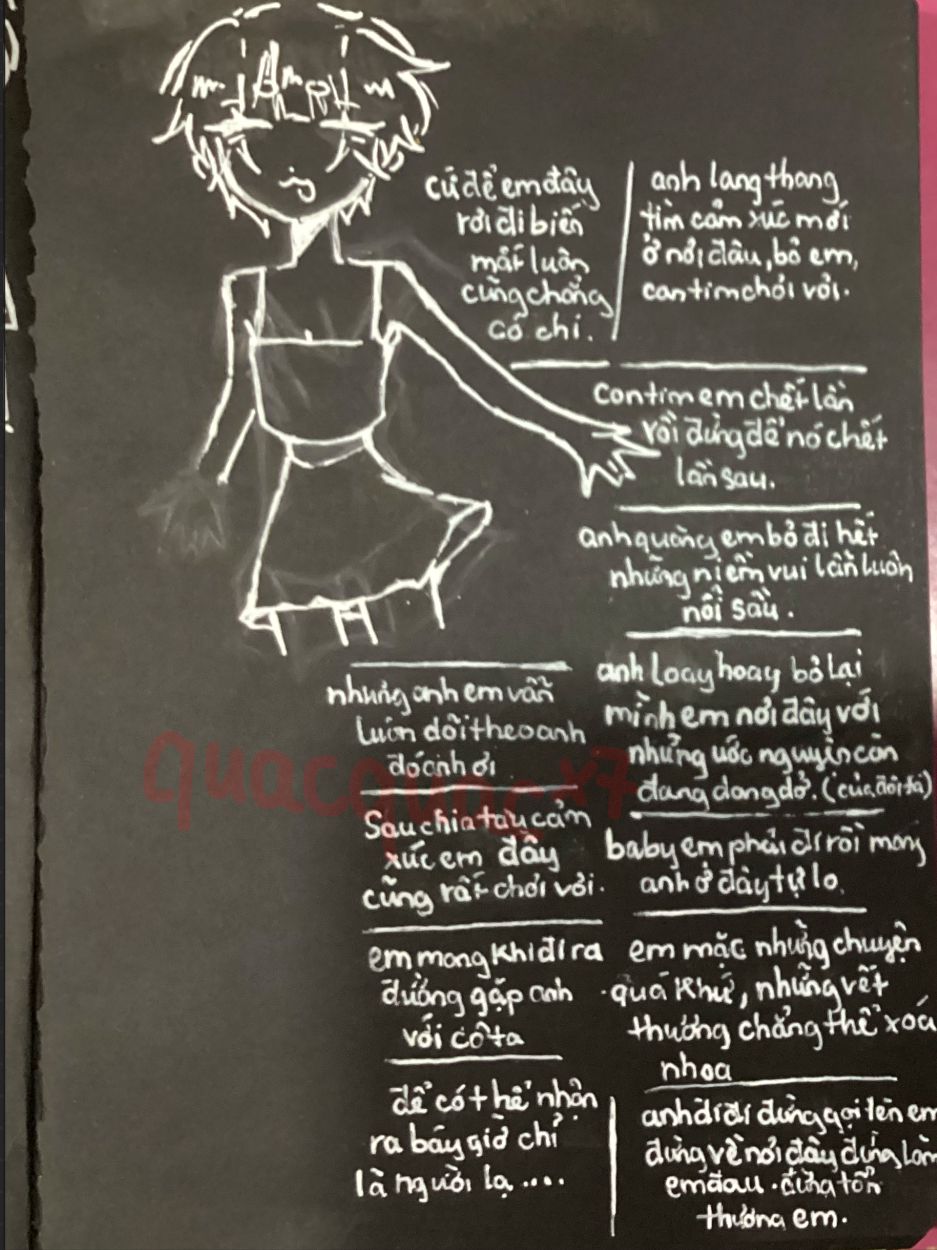 cứ để em đây
rơi đi biến
mất luôn
cũng chẳng
có chi.
anh lang thang
tìm cảm xúc mới
ở nơi đâu, bỏ em,
con tim chơi vơi.
con tim em chết lần
rồi đừng để nó chết
lần sau.
anh quăng em bỏ đi hết
những niềm vui lẫn luôn
nỗi sầu.
anh loay hoay bỏ lại
mình em nơi đây với
những ước nguyện còn
đang dang dở. (của đôi ta)
baby em phải đi rồi mong
anh ở đây tự lo.
em mặc những chuyện
quá khứ, những vết
thương chẳng thể xóa
nhoa
anh đi đi đừng gọi tên em
đừng về nơi đây đừng làm
em đau. đừng tổn
thương em.
nhưng anh em vẫn
luôn dõi theo anh
đó anh ơi
Sau chia tay cảm
xúc em đầy
cũng rất chơi vơi.
em mong khi đi ra
đường gặp anh
với cô ta
để có thể nhận
ra bây giờ chỉ
là người lạ....
quacquacx7